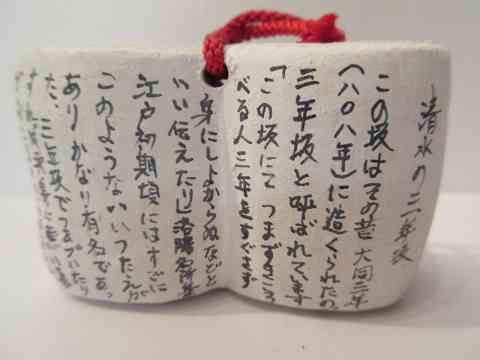 清水の三年坂
この坂はその昔大同三年
(八〇八年)に造くられたの
三年坂と呼ばれています
「この坂にてつまずきころ
べる人三年をすぐさず
身にしよからぬなどと
いい伝えたり」
江戸初期頃にはすでに
このようないいつたえが
ありかなり有名であっ
た、三年坂でつまづいたり